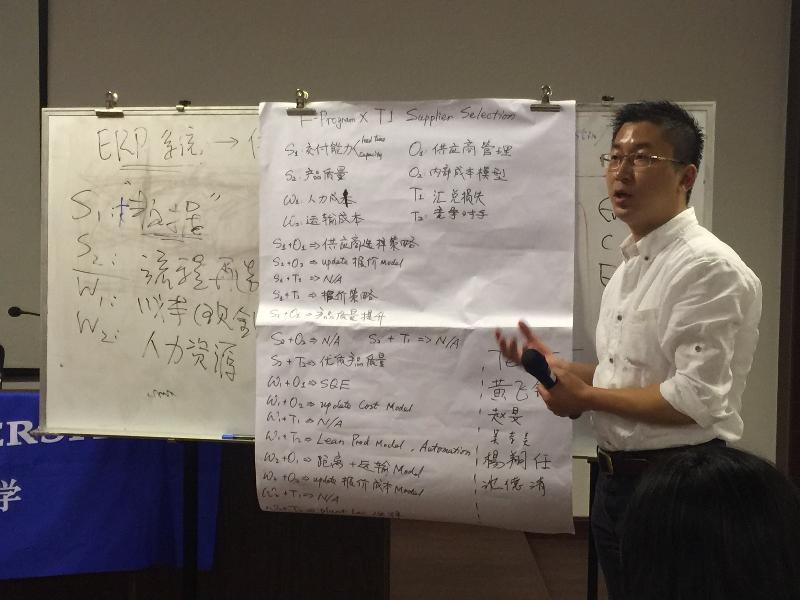 ERP 系统 →
S1:
S2: 流程
W1:
W2: 人力资源
F-Program X T1 Supplier Selection
S1: 交付能力 lead time capacity
O1: 供应商管理
S2: 产品质量
O2: 内部成本模型
W1: 人力成本
T1: 汇兑损失
W2: 运输成本
T2: 竞争对手
S1+O1 ⇒ 供应商选择策略
S1+O2 ⇒ update 报价 Model
S1+T1 ⇒ N/A
S1+T2 ⇒ 报价策略
S2+O1 ⇒ 产品质量提升
S2+O2 ⇒ N/A S2+T1 ⇒ N/A
S2+T2 ⇒ 优质产品质量
W1+O1 ⇒ SQE
W1+O2 ⇒ update Cost Model
W1+T1 ⇒ N/A
W1+T2 ⇒ Lean Prod Model, Automation
W2+O1 ⇒ 距离+运输 Model
W2+O2 ⇒ update 报价成本 Model
W2+T1 ⇒ N/A
黄飞
赵旻
杨翔任
沈德清
ERSI
学